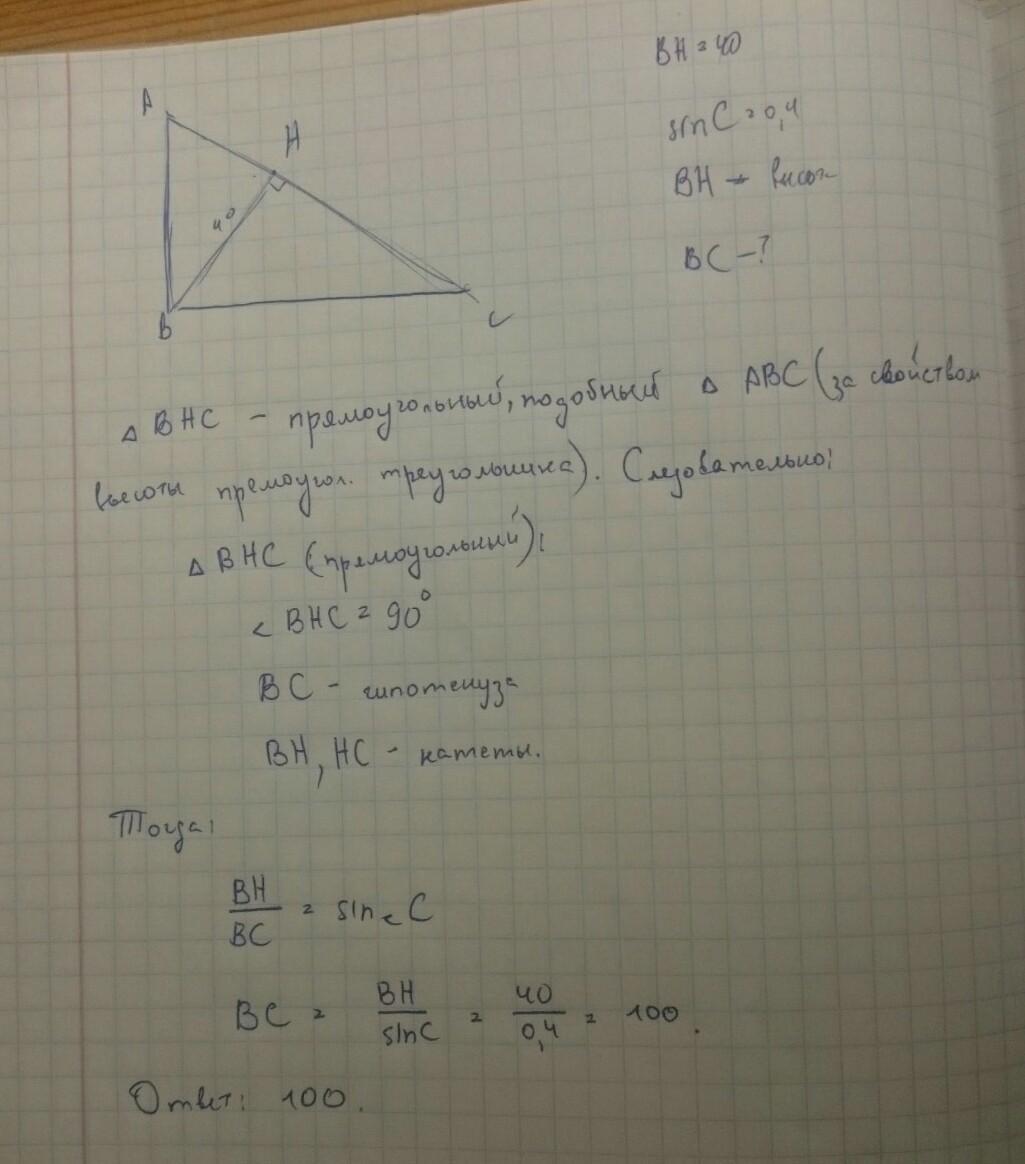 BH = 40
sin C = 0,4
BH – высот
BC – ?
A
H
40
B
C
△ BHC – прямоугольный, подобный △ ABC (за свойством
высоты премоугол. треугольника). Следовательно:
△ BHC (прямоугольний):
< BHC = 90°
BC – гипотенуза
BH, HC – катеты.
Тогда:
BH/BC = sin < C
BC = BH/sin C = 40/0,4 = 100.
Ответ: 100.